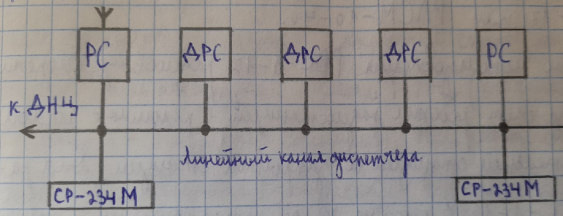 РС ДРС ДРС ДРС РС
к ДНЦ
Линейный канал диспетчера
СР-234М СР-234М